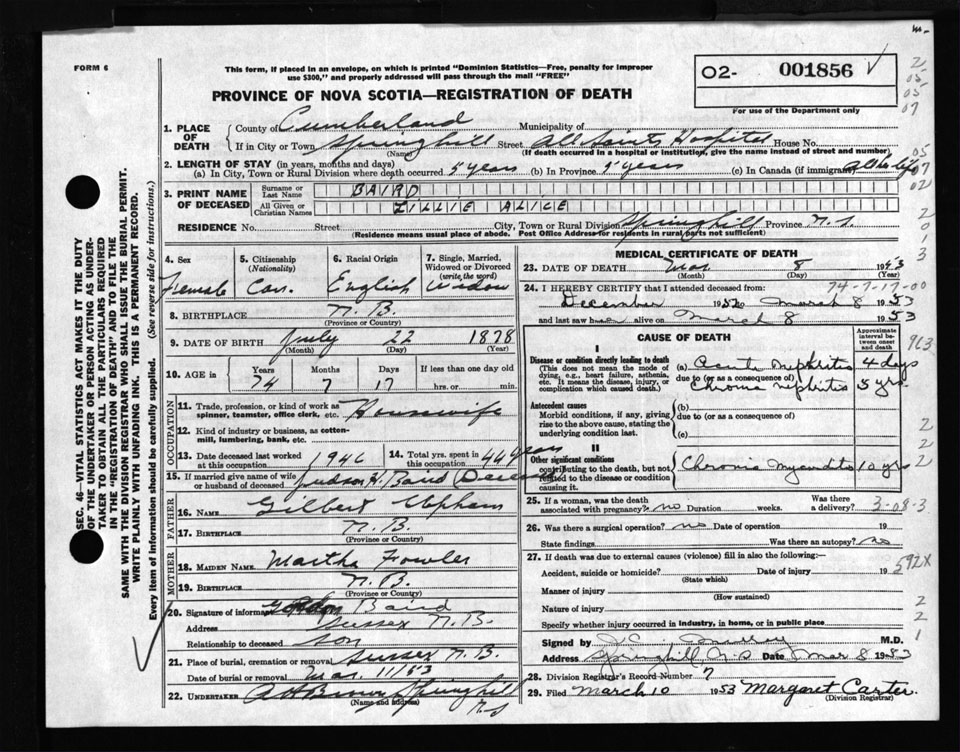 FORM 6
This form, if placed in an envelope, on which is printed "Dominion Statistics—Free, penalty for improper
use $300," and properly addressed will pass through the mail "FREE"
PROVINCE OF NOVA SCOTIA—REGISTRATION OF DEATH
02- 001856
For use of the Department only
SEC. 46—VITAL STATISTICS ACT MAKES IT THE DUTY
OF THE UNDERTAKER OR PERSON ACTING AS UNDER-
TAKER TO OBTAIN ALL THE PARTICULARS REQUIRED
IN THE "REGISTRATION OF DEATH" AND TO FILE THE
SAME WITH THE DIVISION REGISTRAR WHO SHALL ISSUE THE BURIAL PERMIT.
WRITE PLAINLY WITH UNFADING INK. THIS IS A PERMANENT RECORD.
Every item of information should be carefully supplied. (See reverse side for instructions.)
1. PLACE OF DEATH
County of Cumberland Municipality of
If in City or Town Springhill Street All Saints Hospital House No.
(Name) (If death occurred in a hospital or institution, give the name instead of street and number)
2. LENGTH OF STAY (in years, months and days)
(a) In City, Town or Rural Division where death occurred 5 years (b) In Province 5 years (c) In Canada (if immigrant) all life
3. PRINT NAME OF DECEASED
Surname or Last Name BAIRD
All Given or Christian Names LILLIE ALICE
RESIDENCE No. Street City, Town or Rural Division Springhill Province N.S.
(Residence means usual place of abode. Post Office Address for residents in rural parts not sufficient)
4. Sex Female
5. Citizenship (Nationality) Can.
6. Racial Origin English
7. Single, Married, Widowed or Divorced (write the word) Widow
8. BIRTHPLACE N.B.
(Province or Country)
9. DATE OF BIRTH July 22 1878
(Month) (Day) (Year)
10. AGE in Years 74 Months 7 Days 17 If less than one day
hrs. or min.
OCCUPATION
11. Trade, profession, or kind of work as spinner, teamster, office clerk, etc. Housewife
12. Kind of industry or business, as cotton-mill, lumbering, bank, etc.
13. Date deceased last worked at this occupation. 1946
14. Total yrs. spent in this occupation. 44 years
15. If married give name of wife or husband of deceased Judson H. Baird
FATHER
16. NAME Gilbert Upham
17. BIRTHPLACE N.B.
(Province or Country)
MOTHER
18. MAIDEN NAME Martha Fowler
19. BIRTHPLACE N.B.
(Province or Country)
20. Signature of informant Gordon Baird
Address Sussex N.B.
Relationship to deceased son
21. Place of burial, cremation or removal Sussex N.B.
Date of burial or removal Mar. 11/53
22. UNDERTAKER Brown Springhill N.S
(Name and address)
MEDICAL CERTIFICATE OF DEATH
23. DATE OF DEATH Mar 8 1953
(Month) (Day) (Year)
74-7-17-00
24. I HEREBY CERTIFY that I attended deceased from:
December 1952 to March 8 1953
and last saw her alive on March 8 1953
CAUSE OF DEATH
Approximate interval between onset and death
I
Disease or condition directly leading to death
(This does not mean the mode of dying, e.g., heart failure, asthenia, etc. It means the disease, injury, or complication which caused death.)
(a) Acute Nephritis 4 days
due to (or as a consequence of)
Chronic Nephritis 5 yrs.
Antecedent causes
Morbid conditions, if any, giving rise to the above cause, stating the underlying condition last.
(b)
due to (or as a consequence of)
(c)
II
Other significant conditions
contributing to the death, but not related to the disease or condition causing it.
Chronic Myocarditis 10 yrs
25. If a woman, was the death associated with pregnancy? no Duration weeks. Was there a delivery?
3-08-3
26. Was there a surgical operation? no Date of operation 19
State findings Was there an autopsy? no
27. If death was due to external causes (violence) fill in also the following:—
Accident, suicide or homicide? Date of injury 19
(State which)
592X
Manner of injury
(How sustained)
Nature of injury
Specify whether injury occurred in industry, in home, or in public place
Signed by Murray M.D.
Address Springhill N.S Date Mar 8 1953
28. Division Registrar's Record Number 7
29. Filed March 10 1953 Margaret Carter.
(Division Registrar)